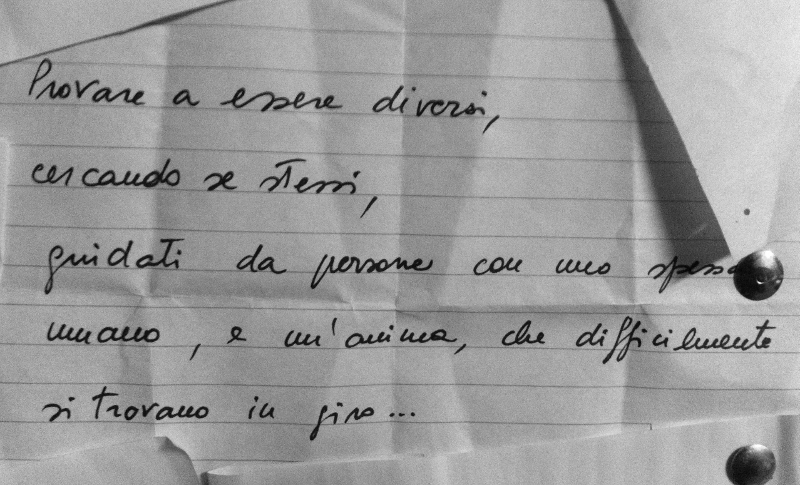 Provare a essere diversi,
cercando se stessi,
guidati da persone con uno
umano, e un'anima, che difficilmente
si trovano in giro...